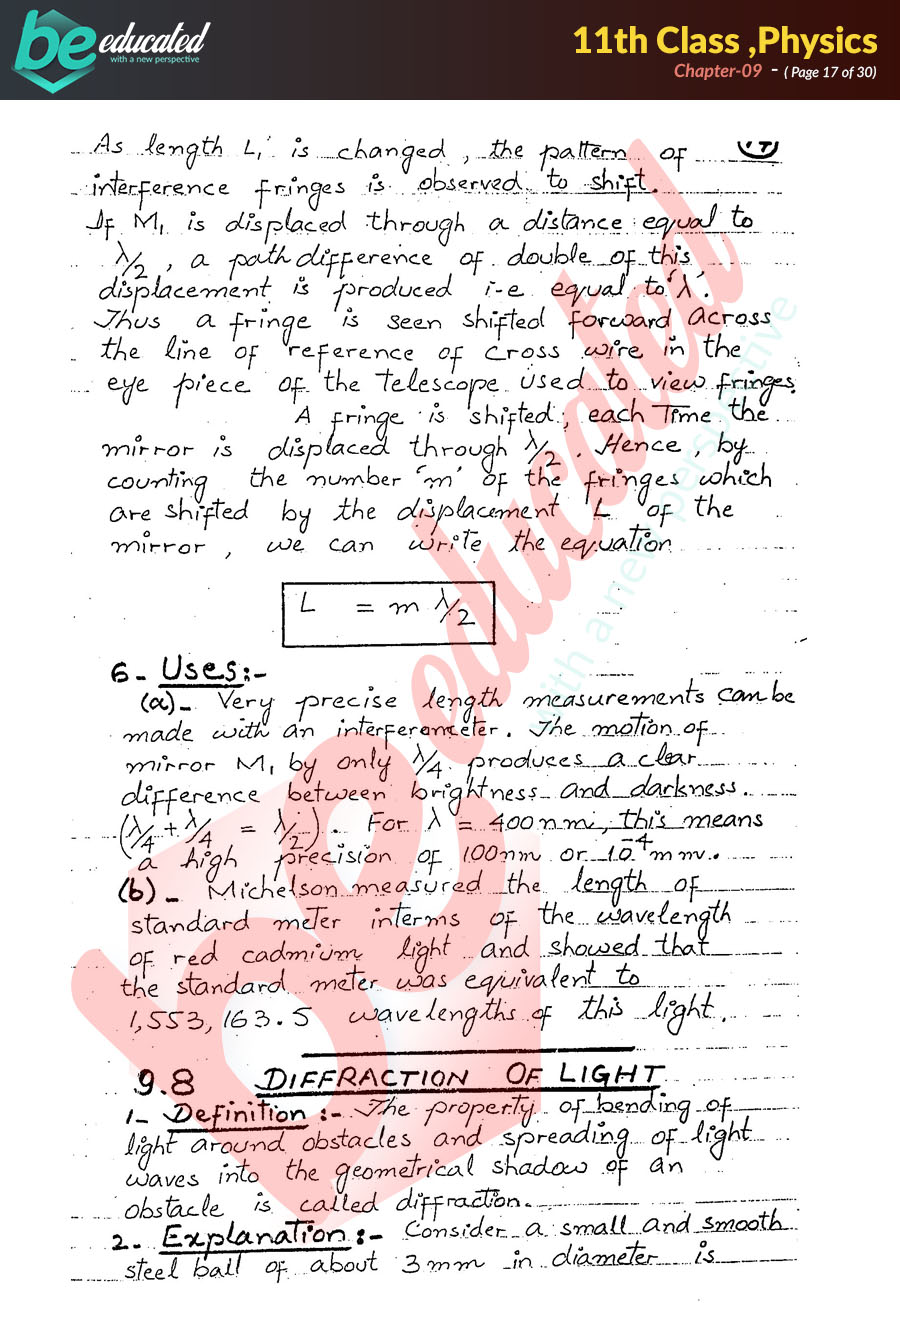 be educated
with a new perspective
11th Class ,Physics
Chapter-09 - ( Page 17 of 30)
17
As length L₁ is changed, the pattern of
interference fringes is observed to shift.
If M₁ is displaced through a distance equal to
λ/2, a path difference of double of this
displacement is produced i-e equal to 'λ'.
Thus a fringe is seen shifted forward across
the line of reference of cross wire in the
eye piece of the telescope used to view fringes.
A fringe is shifted, each time the
mirror is displaced through λ/2. Hence, by
counting the number 'm' of the fringes which
are shifted by the displacement 'L' of the
mirror, we can write the equation
L = m λ/2
6- Uses:-
(a)- Very precise length measurements can be
made with an interferometer. The motion of
mirror M₁ by only λ/4 produces a clear
difference between brightness and darkness.
(λ/4 + λ/4 = λ/2). For λ = 400nm, this means
a high precision of 100nm or 10⁻⁴mm.
(b)- Michelson measured the length of
standard meter interms of the wavelength
of red cadmium light and showed that
the standard meter was equivalent to
1,553,163.5 wavelengths of this light.
9.8 DIFFRACTION OF LIGHT
1- Definition:- The property of bending of
light around obstacles and spreading of light
waves into the geometrical shadow of an
obstacle is called diffraction.
2- Explanation:- Consider a small and smooth
steel ball of about 3mm in diameter is
be educated
with a new perspective